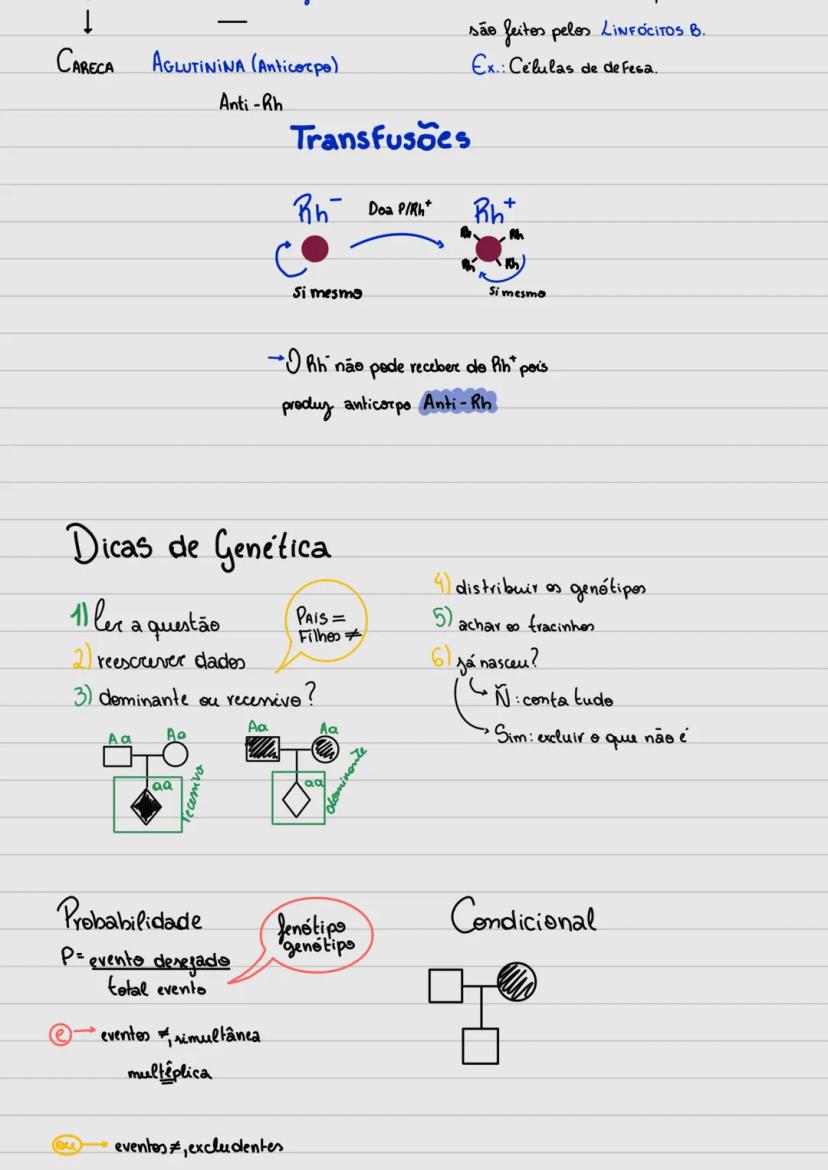 são feitos pelos LINFÓCITOS B.
CARECA AGLUTININA (Anticorpo)
Ex.: Células de defesa.
Anti-Rh
Transfusões
Rh⁻ Doa p/Rh⁺ Rh⁺
Rh Rh
Rh Rh
Si mesmo
Si mesmo
→ O Rh⁻ não pode receber do Rh⁺ pois
produz anticorpo Anti-Rh
Dicas de Genética
1) ler a questão
2) reescrever dados
3) dominante ou recessivo?
PAIS =
Filhos ≠
4) distribuir os genótipos
5) achar os tracinhos
6) já nasceu?
Ñ: conta tudo
Sim: excluir o que não é
Aa Aa
aa
recessivo
Aa Aa
aa
dominante
Probabilidade
P = evento desejado
total evento
fenótipo
genótipo
e → eventos ≠, simultânea
multíplica
ou → eventos ≠, excludentes
Condicional